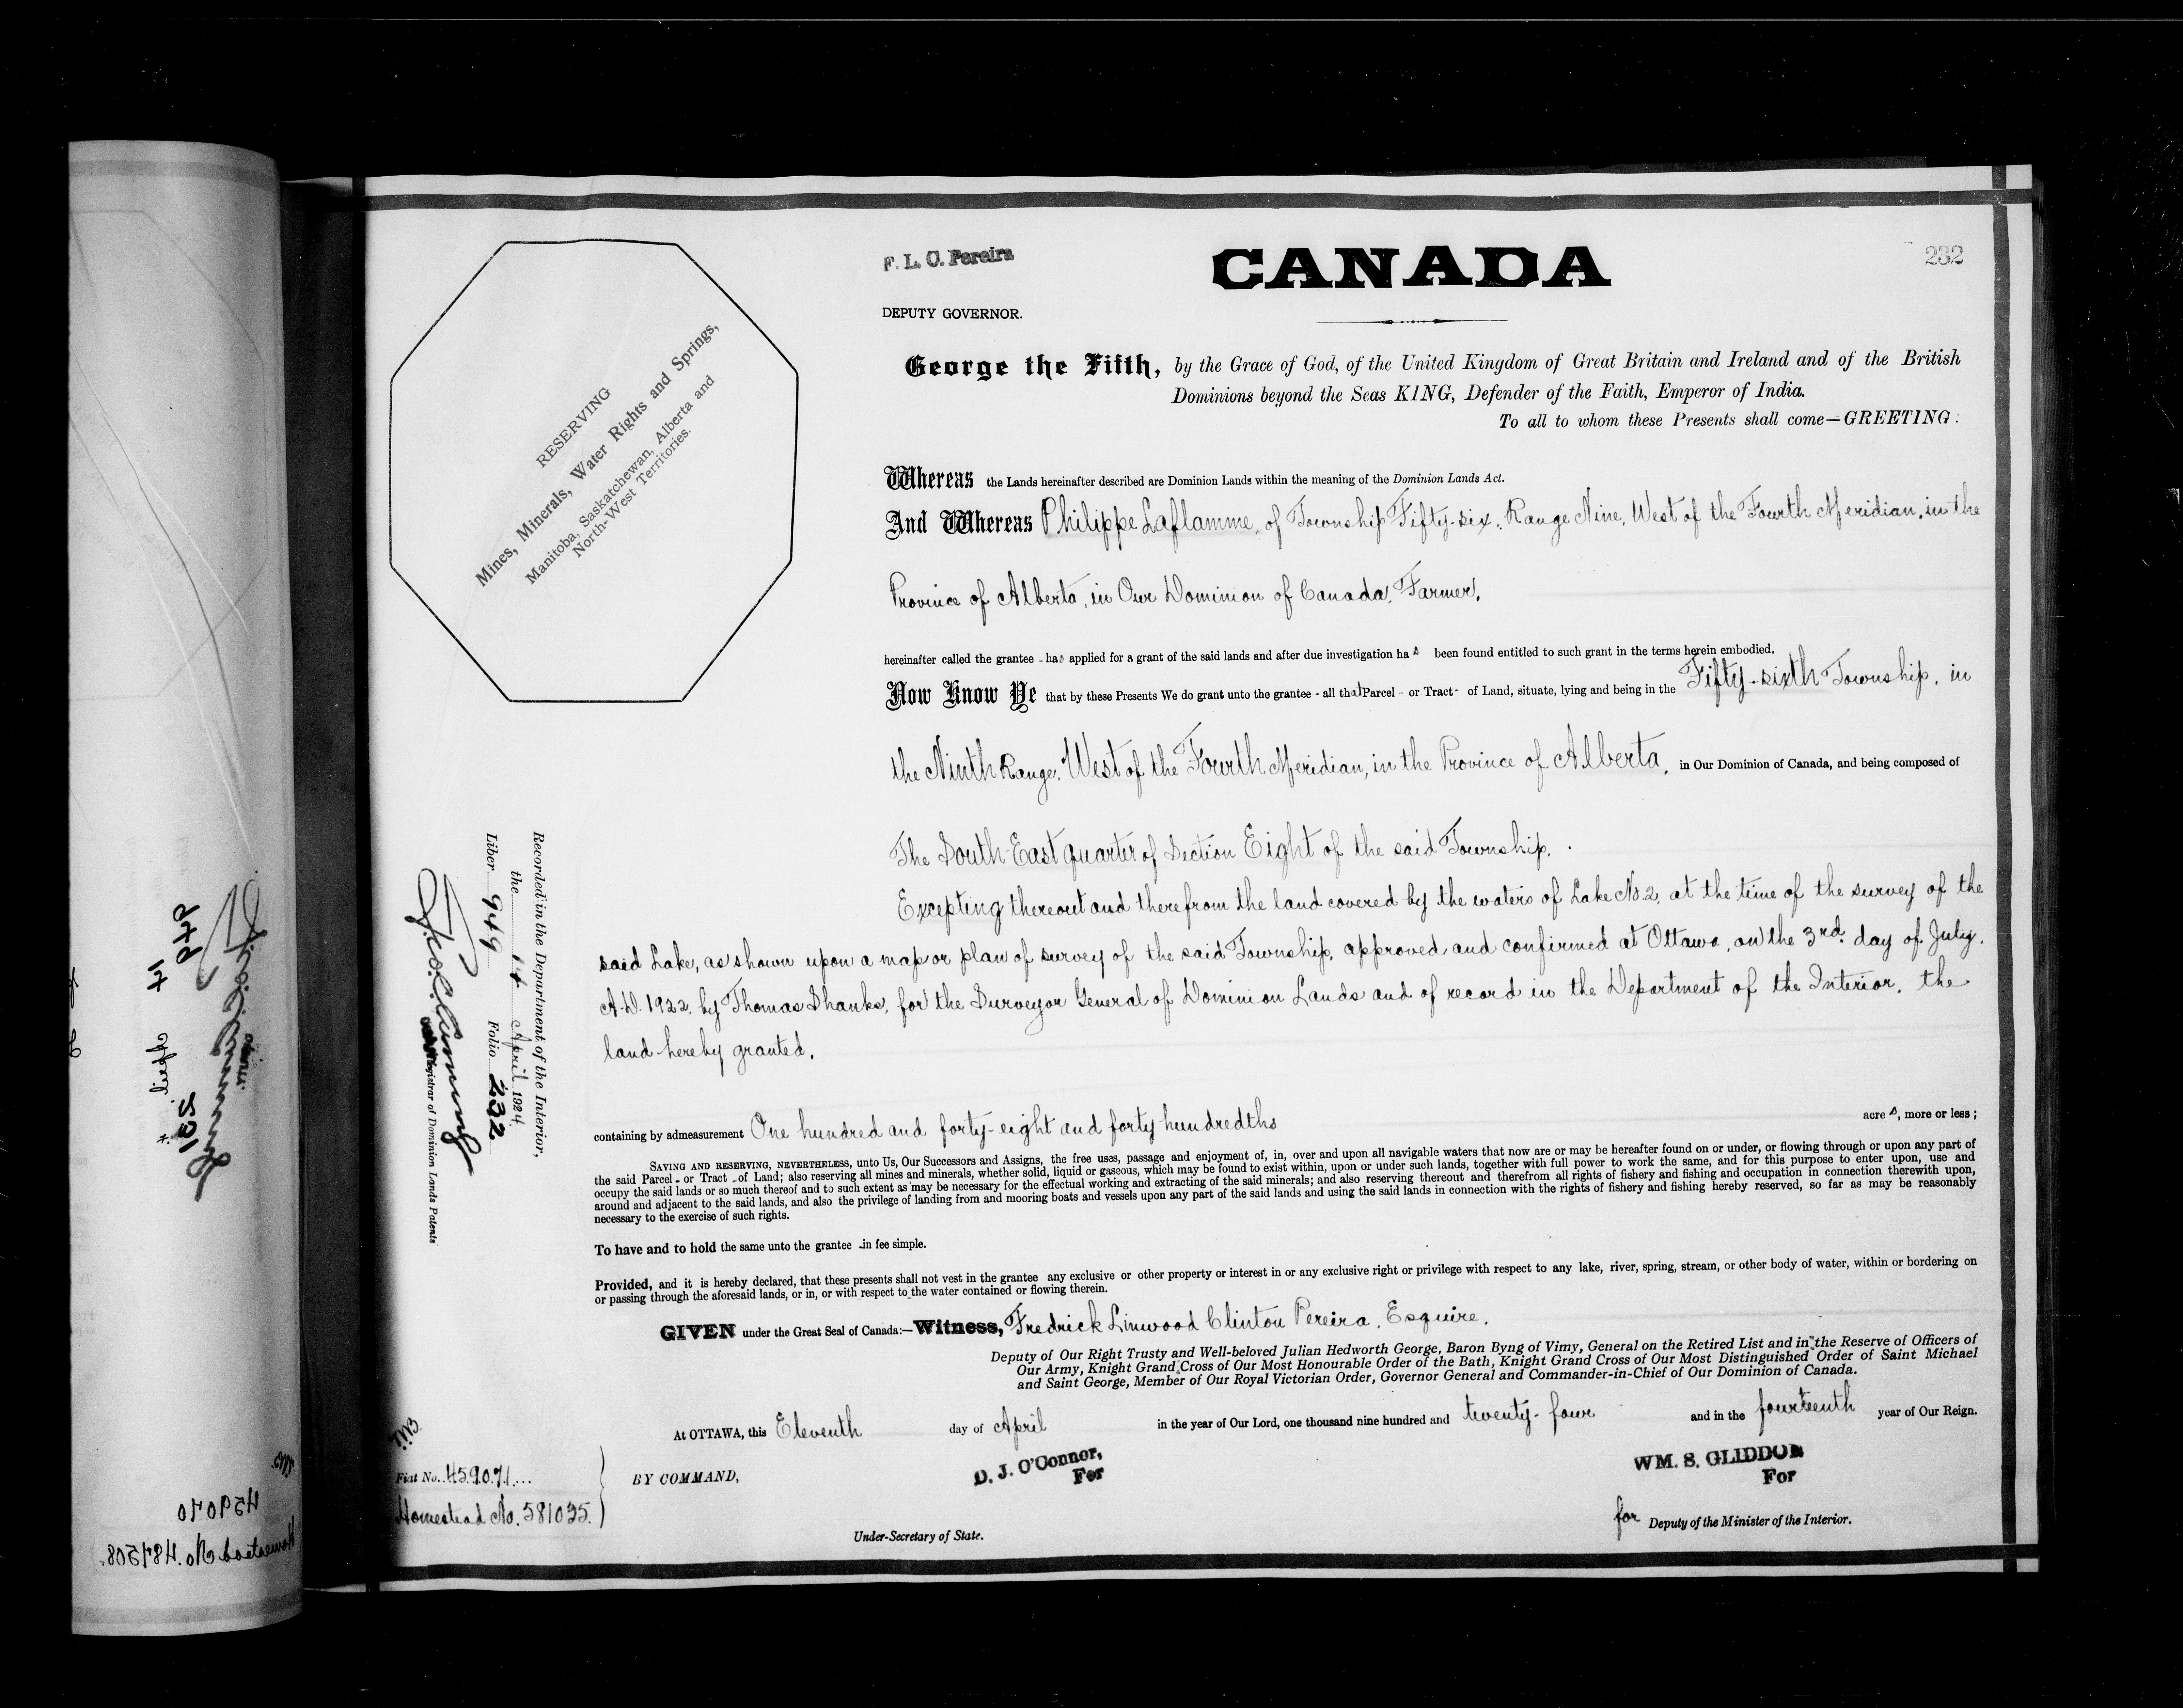 232
F. L. C. Pereira
CANADA
DEPUTY GOVERNOR.
George the Fifth, by the Grace of God, of the United Kingdom of Great Britain and Ireland and of the British
Dominions beyond the Seas KING, Defender of the Faith, Emperor of India.
To all to whom these Presents shall come—GREETING:
RESERVING
Mines, Minerals, Water Rights and Springs,
Manitoba, Saskatchewan, Alberta and
North-West Territories.
Whereas the Lands hereinafter described are Dominion Lands within the meaning of the Dominion Lands Act.
And Whereas Philippe Laflamme, of Township Fifty-six, Range Nine, West of the Fourth Meridian, in the
Province of Alberta, in Our Dominion of Canada, Farmer,
hereinafter called the grantee - has applied for a grant of the said lands and after due investigation has been found entitled to such grant in the terms herein embodied.
Now Know Ye that by these Presents We do grant unto the grantee - all that Parcel - or Tract - of Land, situate, lying and being in the Fifty-sixth Township, in
the Ninth Range, West of the Fourth Meridian, in the Province of Alberta, in Our Dominion of Canada, and being composed of
The South-East quarter of Section Eight of the said Township.
Excepting thereout and therefrom the land covered by the waters of Lake No. 2, at the time of the survey of the
said Lake, as shown upon a map or plan of survey of the said Township, approved and confirmed at Ottawa, on the 3rd. day of July,
A.D. 1922, by Thomas Shanks, for the Surveyor General of Dominion Lands and of record in the Department of the Interior, the
land hereby granted,
containing by admeasurement One hundred and forty-eight and forty hundredths acres, more or less;
SAVING AND RESERVING, NEVERTHELESS, unto Us, Our Successors and Assigns, the free uses, passage and enjoyment of, in, over and upon all navigable waters that now are or may be hereafter found on or under, or flowing through or upon any part of
the said Parcel - or Tract - of Land; also reserving all mines and minerals, whether solid, liquid or gaseous, which may be found to exist within, upon or under such lands, together with full power to work the same, and for this purpose to enter upon, use and
occupy the said lands or so much thereof and to such extent as may be necessary for the effectual working and extracting of the said minerals; and also reserving thereout and therefrom all rights of fishery and fishing and occupation in connection therewith upon,
around and adjacent to the said lands, and also the privilege of landing from and mooring boats and vessels upon any part of the said lands and using the said lands in connection with the rights of fishery and fishing hereby reserved, so far as may be reasonably
necessary to the exercise of such rights.
To have and to hold the same unto the grantee - in fee simple.
Provided, and it is hereby declared, that these presents shall not vest in the grantee any exclusive or other property or interest in or any exclusive right or privilege with respect to any lake, river, spring, stream, or other body of water, within or bordering on
or passing through the aforesaid lands, or in, or with respect to the water contained or flowing therein.
GIVEN under the Great Seal of Canada:—Witness, Fredrick Linwood Clinton Pereira, Esquire,
Deputy of Our Right Trusty and Well-beloved Julian Hedworth George, Baron Byng of Vimy, General on the Retired List and in the Reserve of Officers of
Our Army, Knight Grand Cross of Our Most Honourable Order of the Bath, Knight Grand Cross of Our Most Distinguished Order of Saint Michael
and Saint George, Member of Our Royal Victorian Order, Governor General and Commander-in-Chief of Our Dominion of Canada.
At OTTAWA, this Eleventh day of April in the year of Our Lord, one thousand nine hundred and twenty-four and in the fourteenth year of Our Reign.
BY COMMAND,
D. J. O'Connor,
For
Under-Secretary of State.
WM. S. GLIDDON
For
for Deputy of the Minister of the Interior.
Recorded in the Department of the Interior,
the 14 April 1924
Liber 949 Folio 232
Registrar of Dominion Lands Patents
Fiat No. 459071
Homestead No. 581035.
949
14 April
231
459070
Homestead No. 487508.